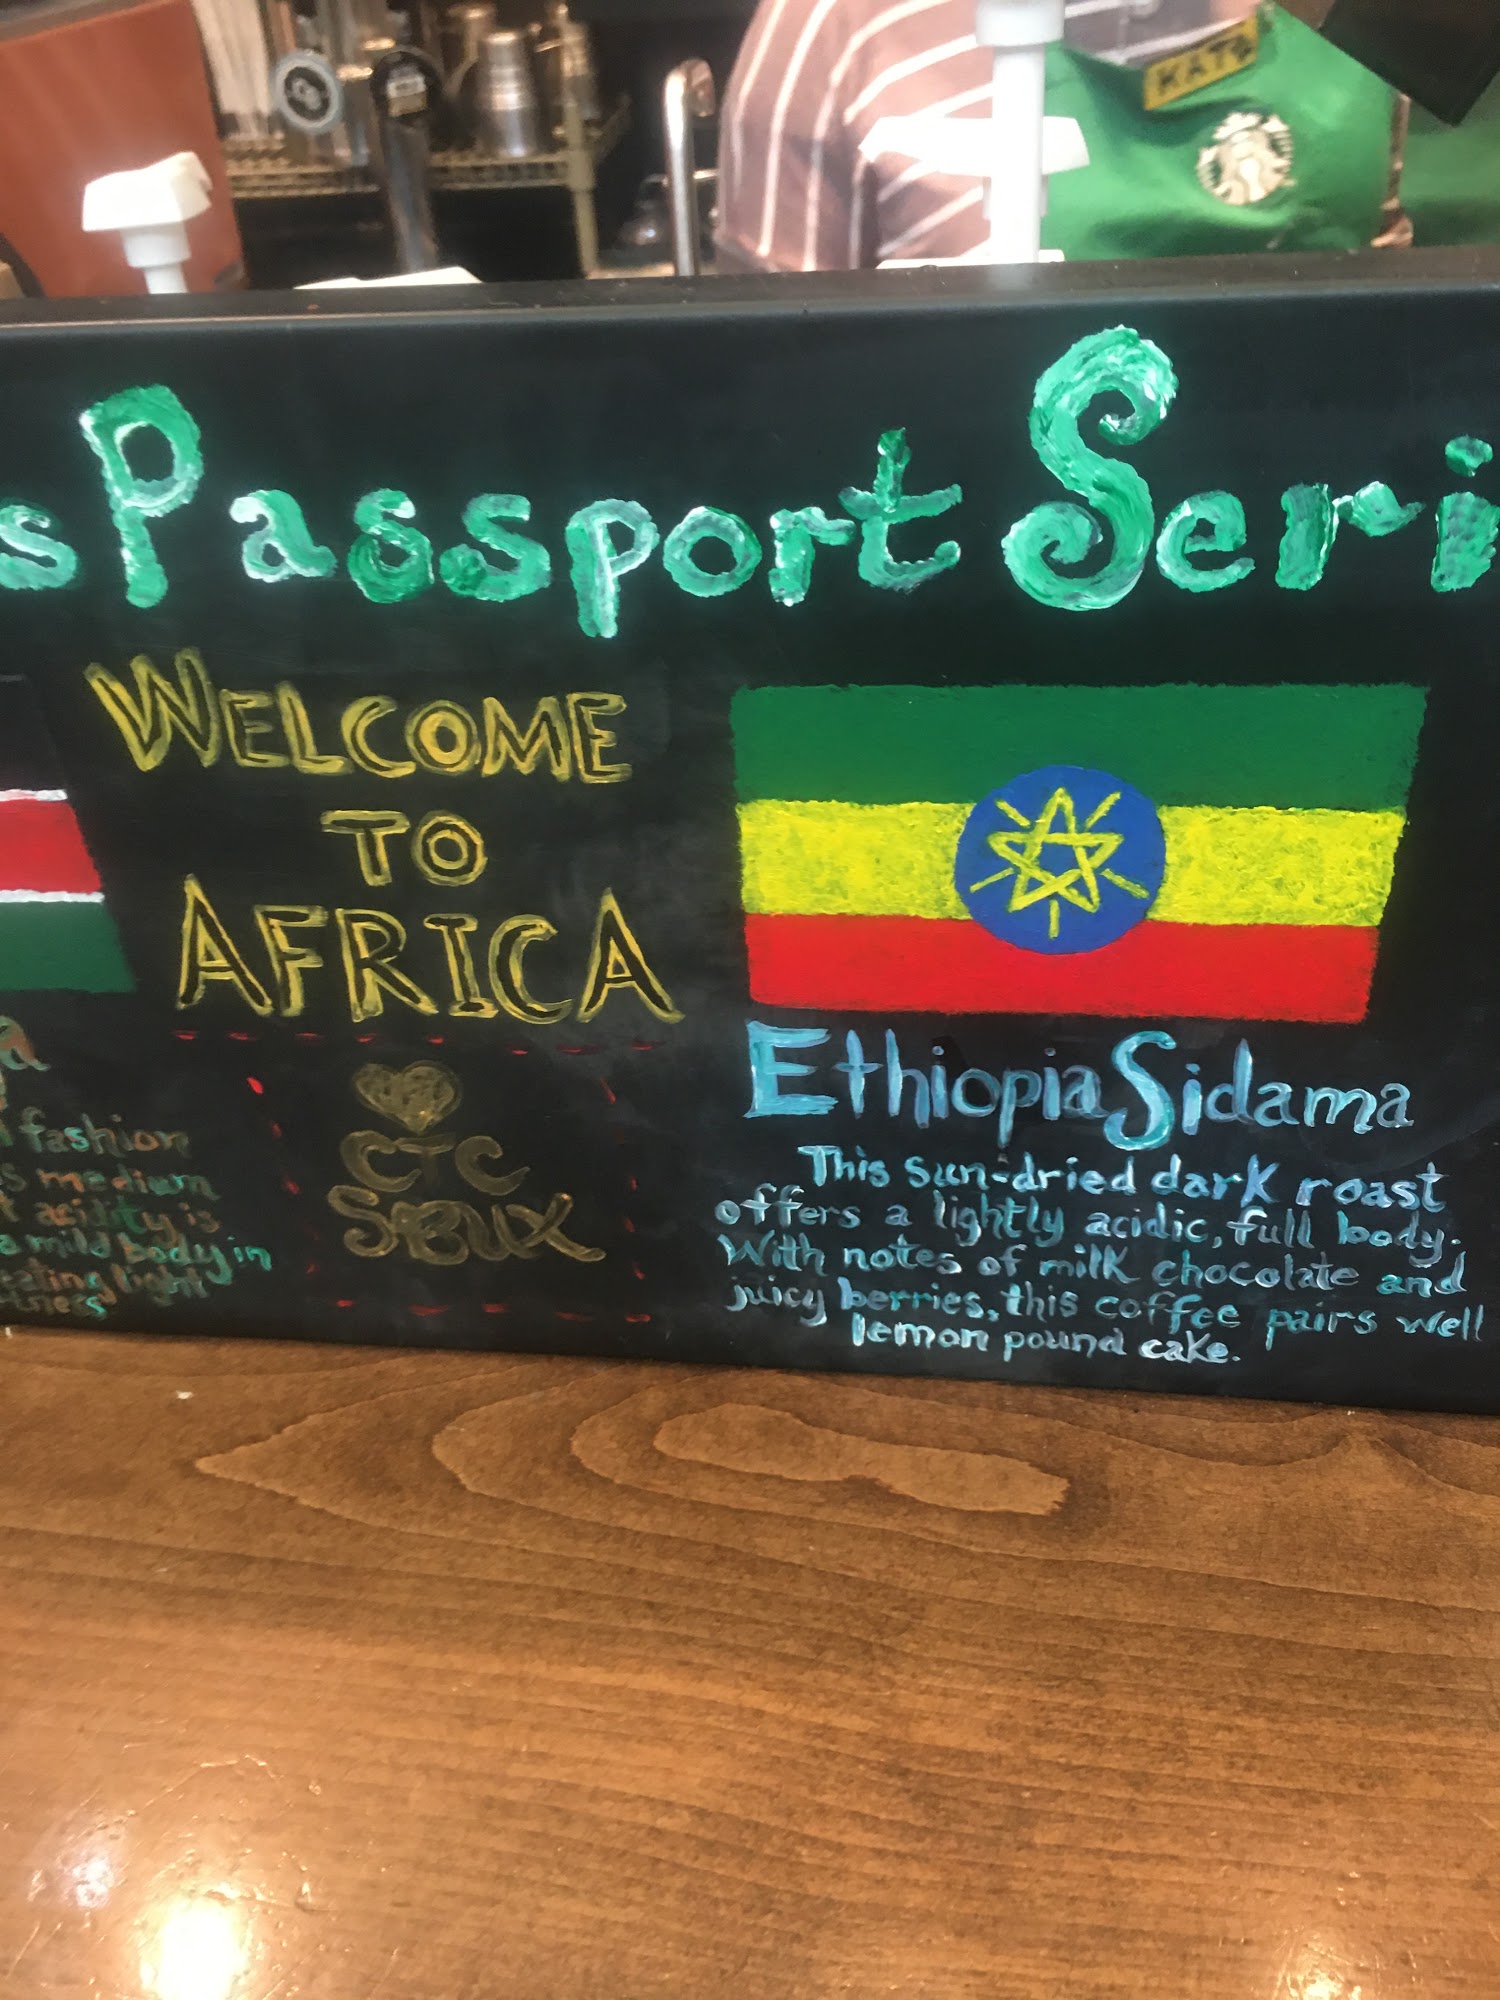 KATE
s Passport Seri
WELCOME
TO
AFRICA
fashion
s medium
acidity is
a mild body in
eating light
CTC
SiOUX
Ethiopia Sidama
This sun-dried dark roast
offers a lightly acidic, full body.
With notes of milk chocolate and
juicy berries, this coffee pairs well
lemon pound cake.